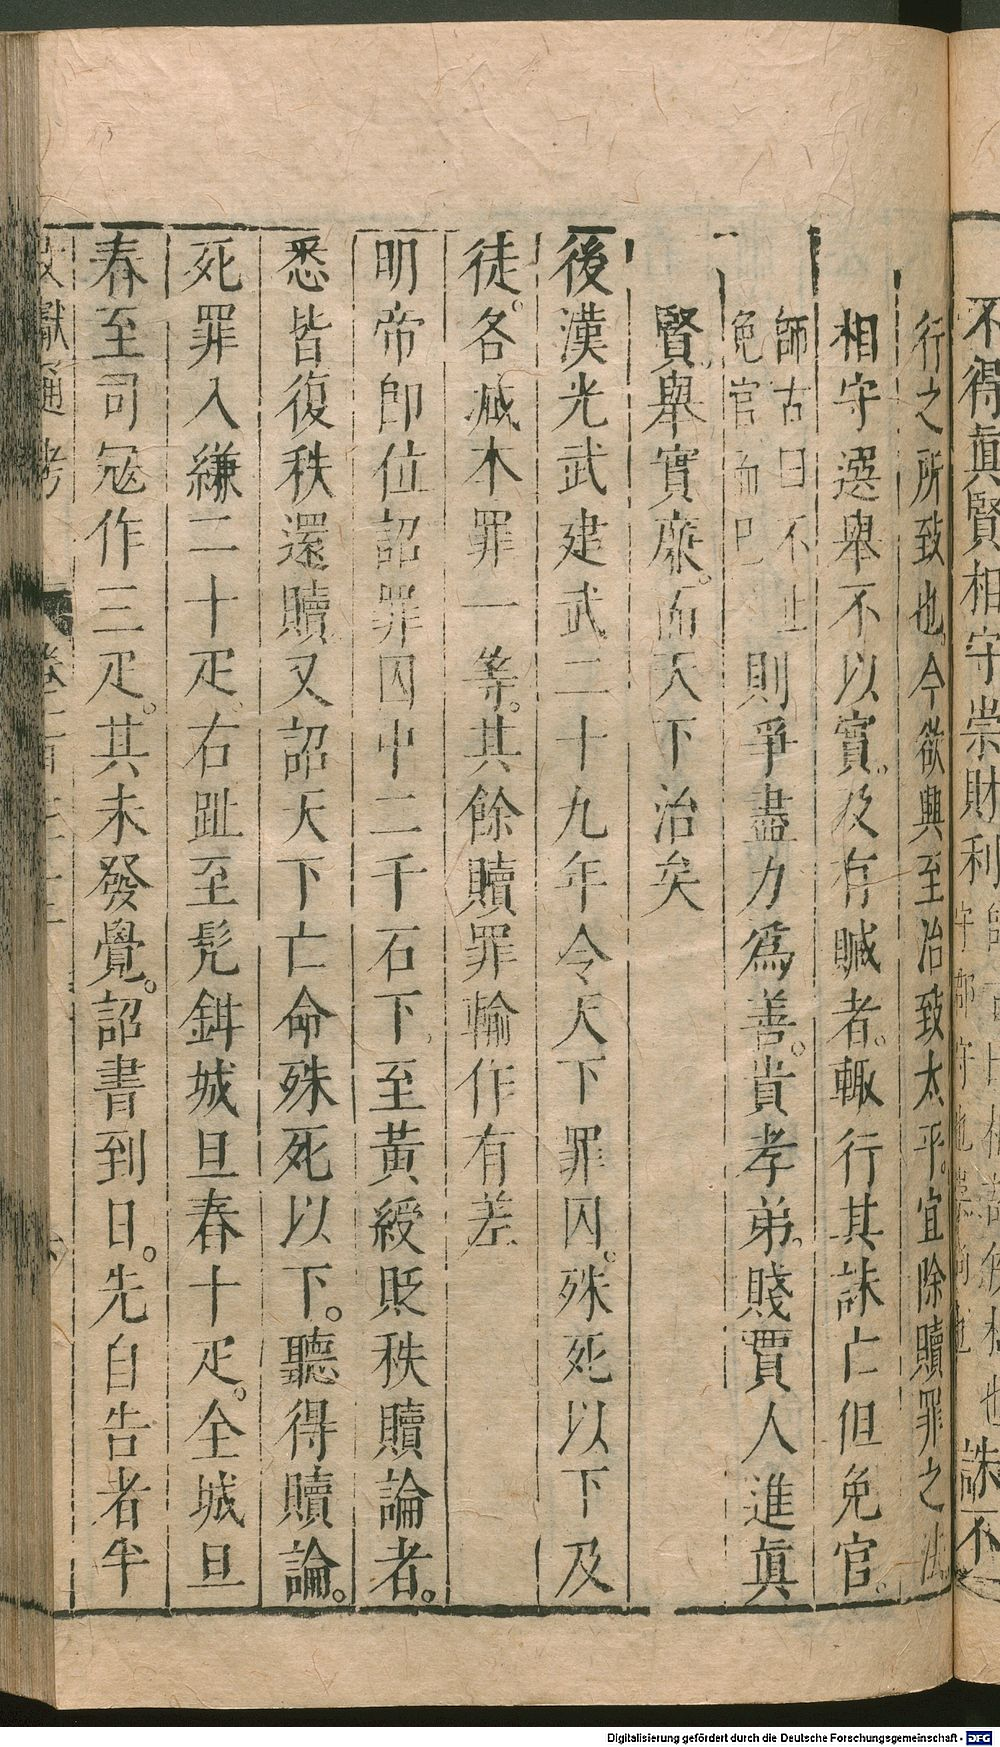 不得眞賢相守崇財利
誅不
行之所致也今欲興至治致太平。宜除贖罪之法
相守選舉不以實。及有贓者。輒行其誅亡但免官。
師古曰不止
免官而巳
則爭盡力爲善。貴孝弟。賤賈人進眞
賢。舉實廉。而天下治矣
後漢光武建武二十九年令天下罪囚。殊死以下及
徒。各减本罪一等。其餘贖罪輸作有差
明帝卽位詔罪囚中二千石下。至黃綬貶秩贖論者。
悉皆復秩還贖又詔天下亡命殊死以下。聽得贖論。
死罪入縑二十疋。右趾至髠鉗城旦舂十疋。全城旦
舂至司冦作三疋。其未發覺。詔書到日。先自告者半
獻通考
Digitalisierung gefördert durch die Deutsche Forschungsgemeinschaft - DFG